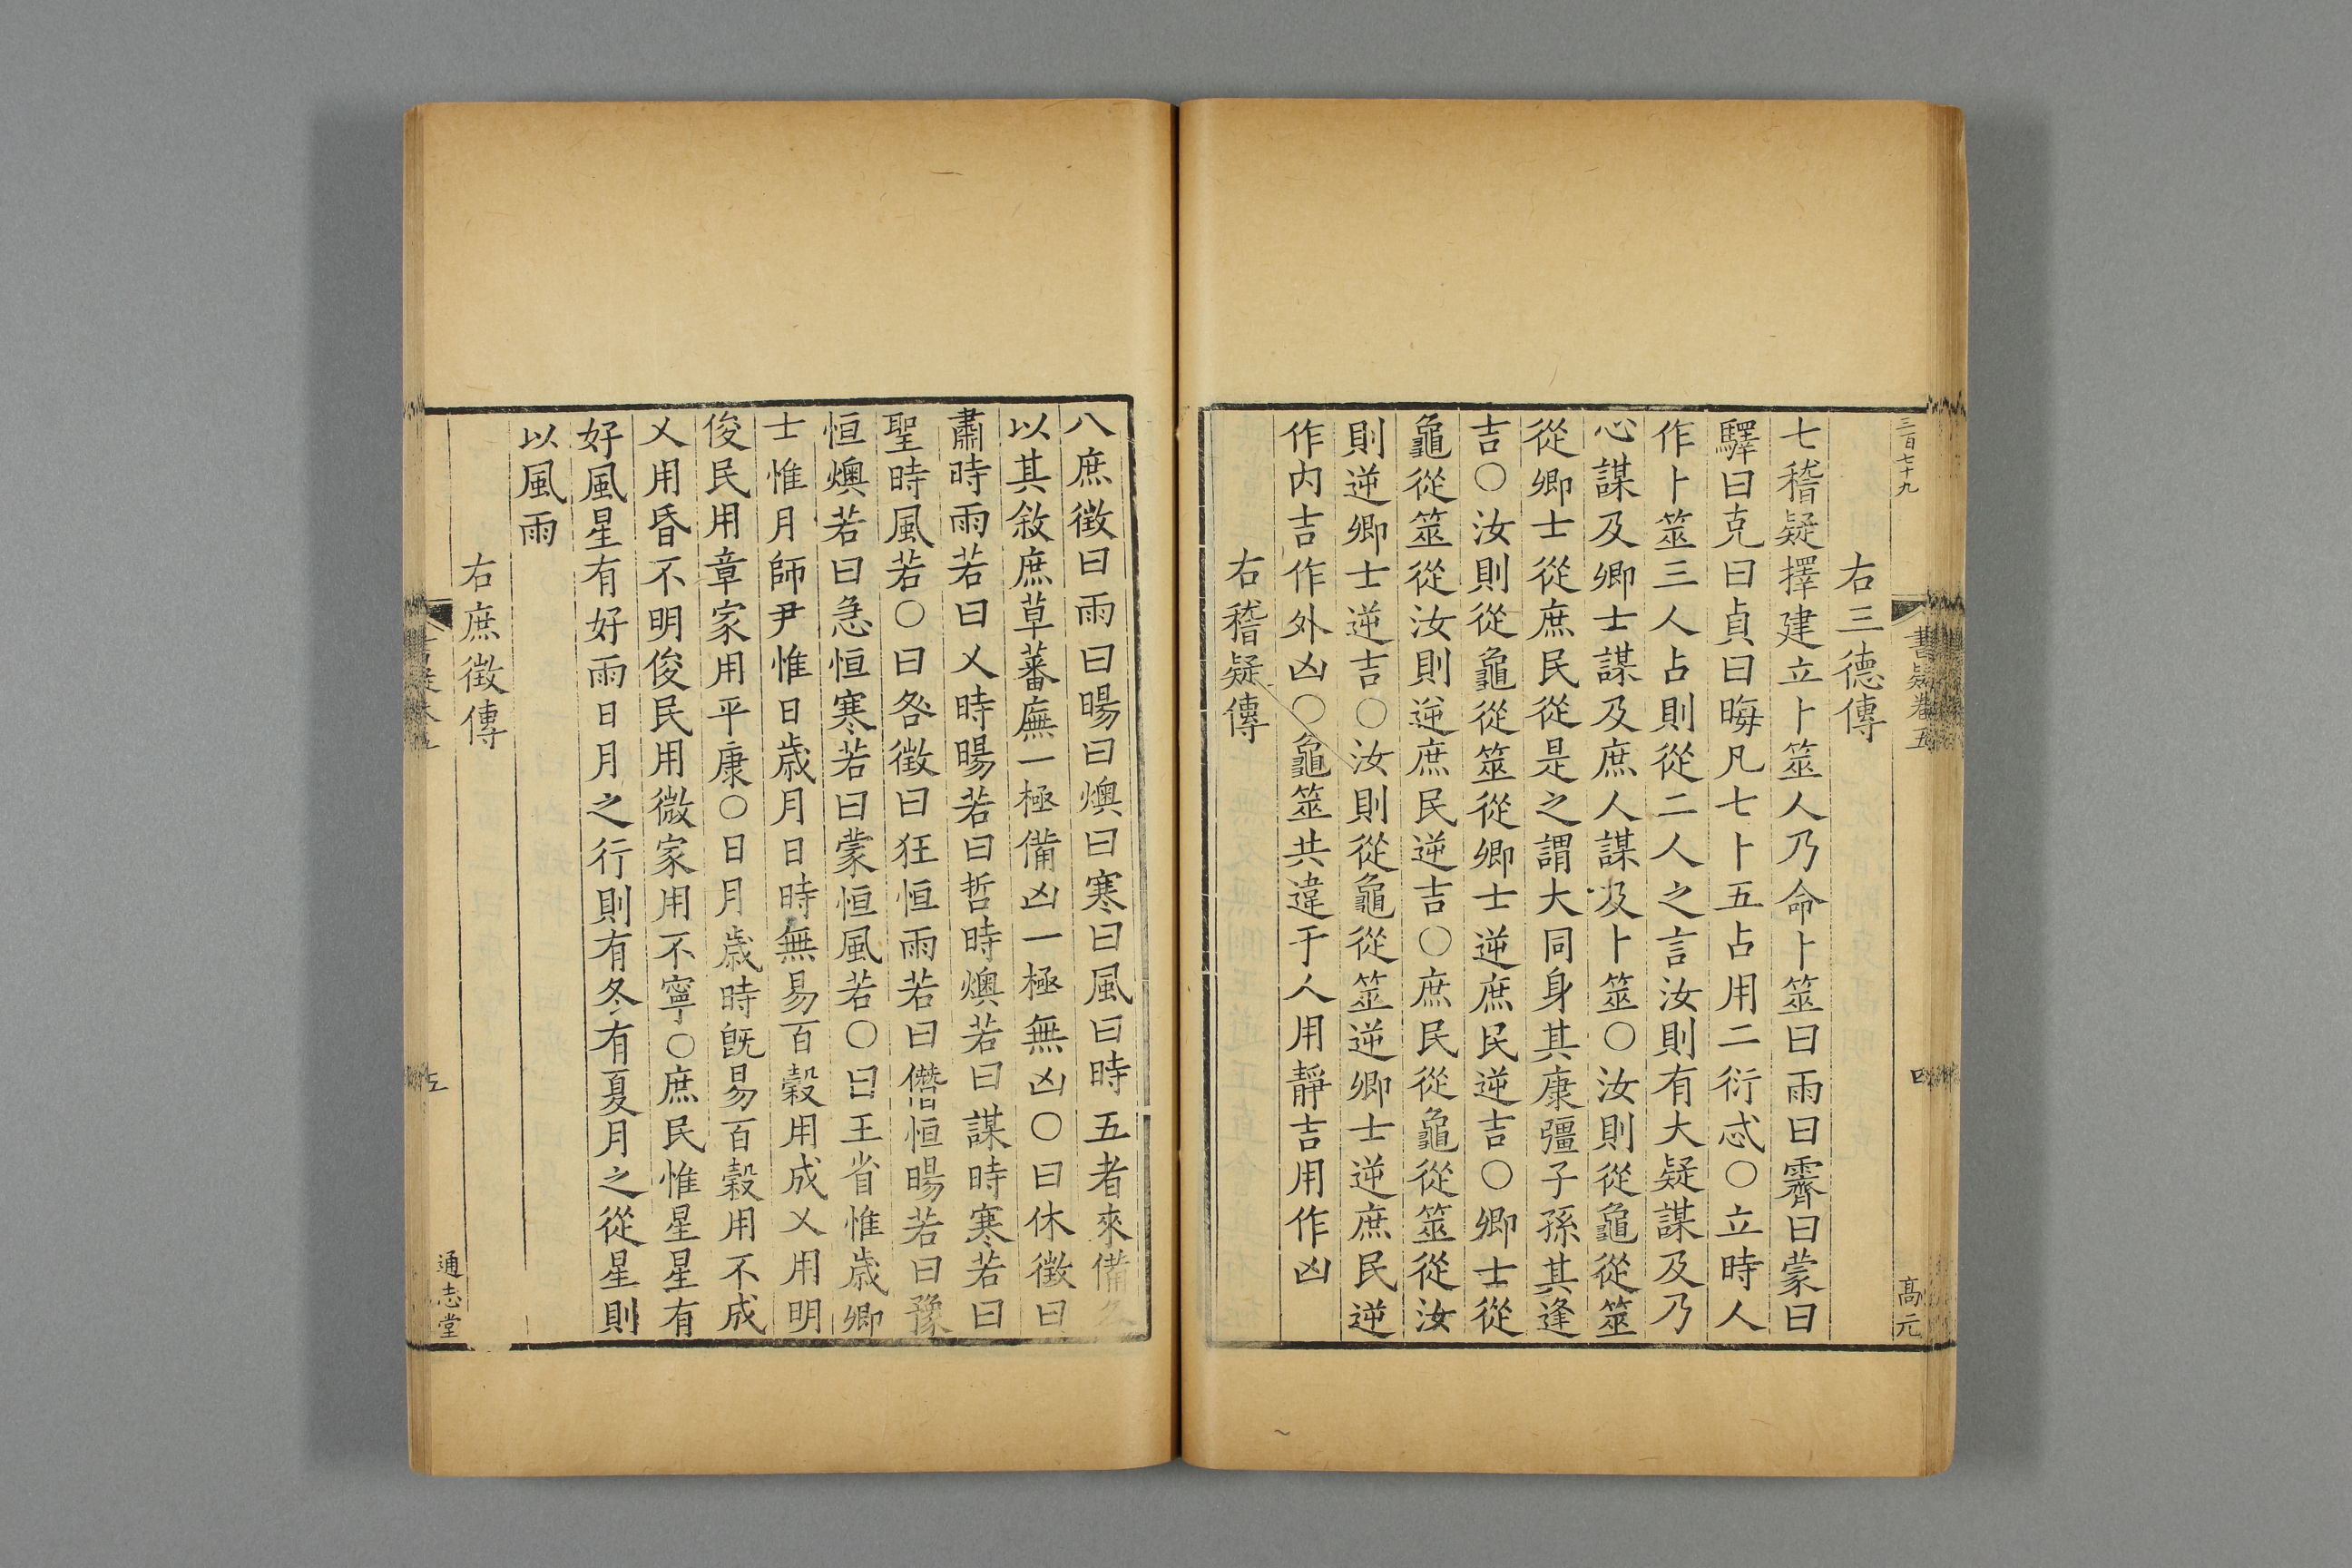 三百七十九
書疑卷五
四
高元
右三德傳
七稽疑擇建立卜筮人乃命卜筮曰雨曰霽曰蒙曰
驛曰克曰貞曰晦凡七卜五占用二衍忒○立時人
作卜筮三人占則從二人之言汝則有大疑謀及乃
心謀及卿士謀及庶人謀及卜筮○汝則從龜從筮
從卿士從庶民從是之謂大同身其康彊子孫其逢
吉○汝則從龜從筮從卿士逆庶民逆吉○卿士從
龜從筮從汝則逆庶民逆吉○庶民從龜從筮從汝
則逆卿士逆吉○汝則從龜從筮逆卿士逆庶民逆
作内吉作外凶○龜筮共違于人用靜吉用作凶
右稽疑傳
八庶徵曰雨曰暘曰燠曰寒曰風曰時五者來備
以其敘庶草蕃廡一極備凶一極無凶○曰休徵曰
肅時雨若曰乂時暘若曰哲時燠若曰謀時寒若曰
聖時風若○曰咎徵曰狂恒雨若曰僭恒暘若曰豫
恒燠若曰急恒寒若曰蒙恒風若○曰王省惟歲卿
士惟月師尹惟日歲月日時無易百穀用成乂用明
俊民用章家用平康○日月歲時旣易百穀用不成
乂用昏不明俊民用微家用不寧○庶民惟星星有
好風星有好雨日月之行則有冬有夏月之從星則
以風雨
右庶徵傳
五
通志堂